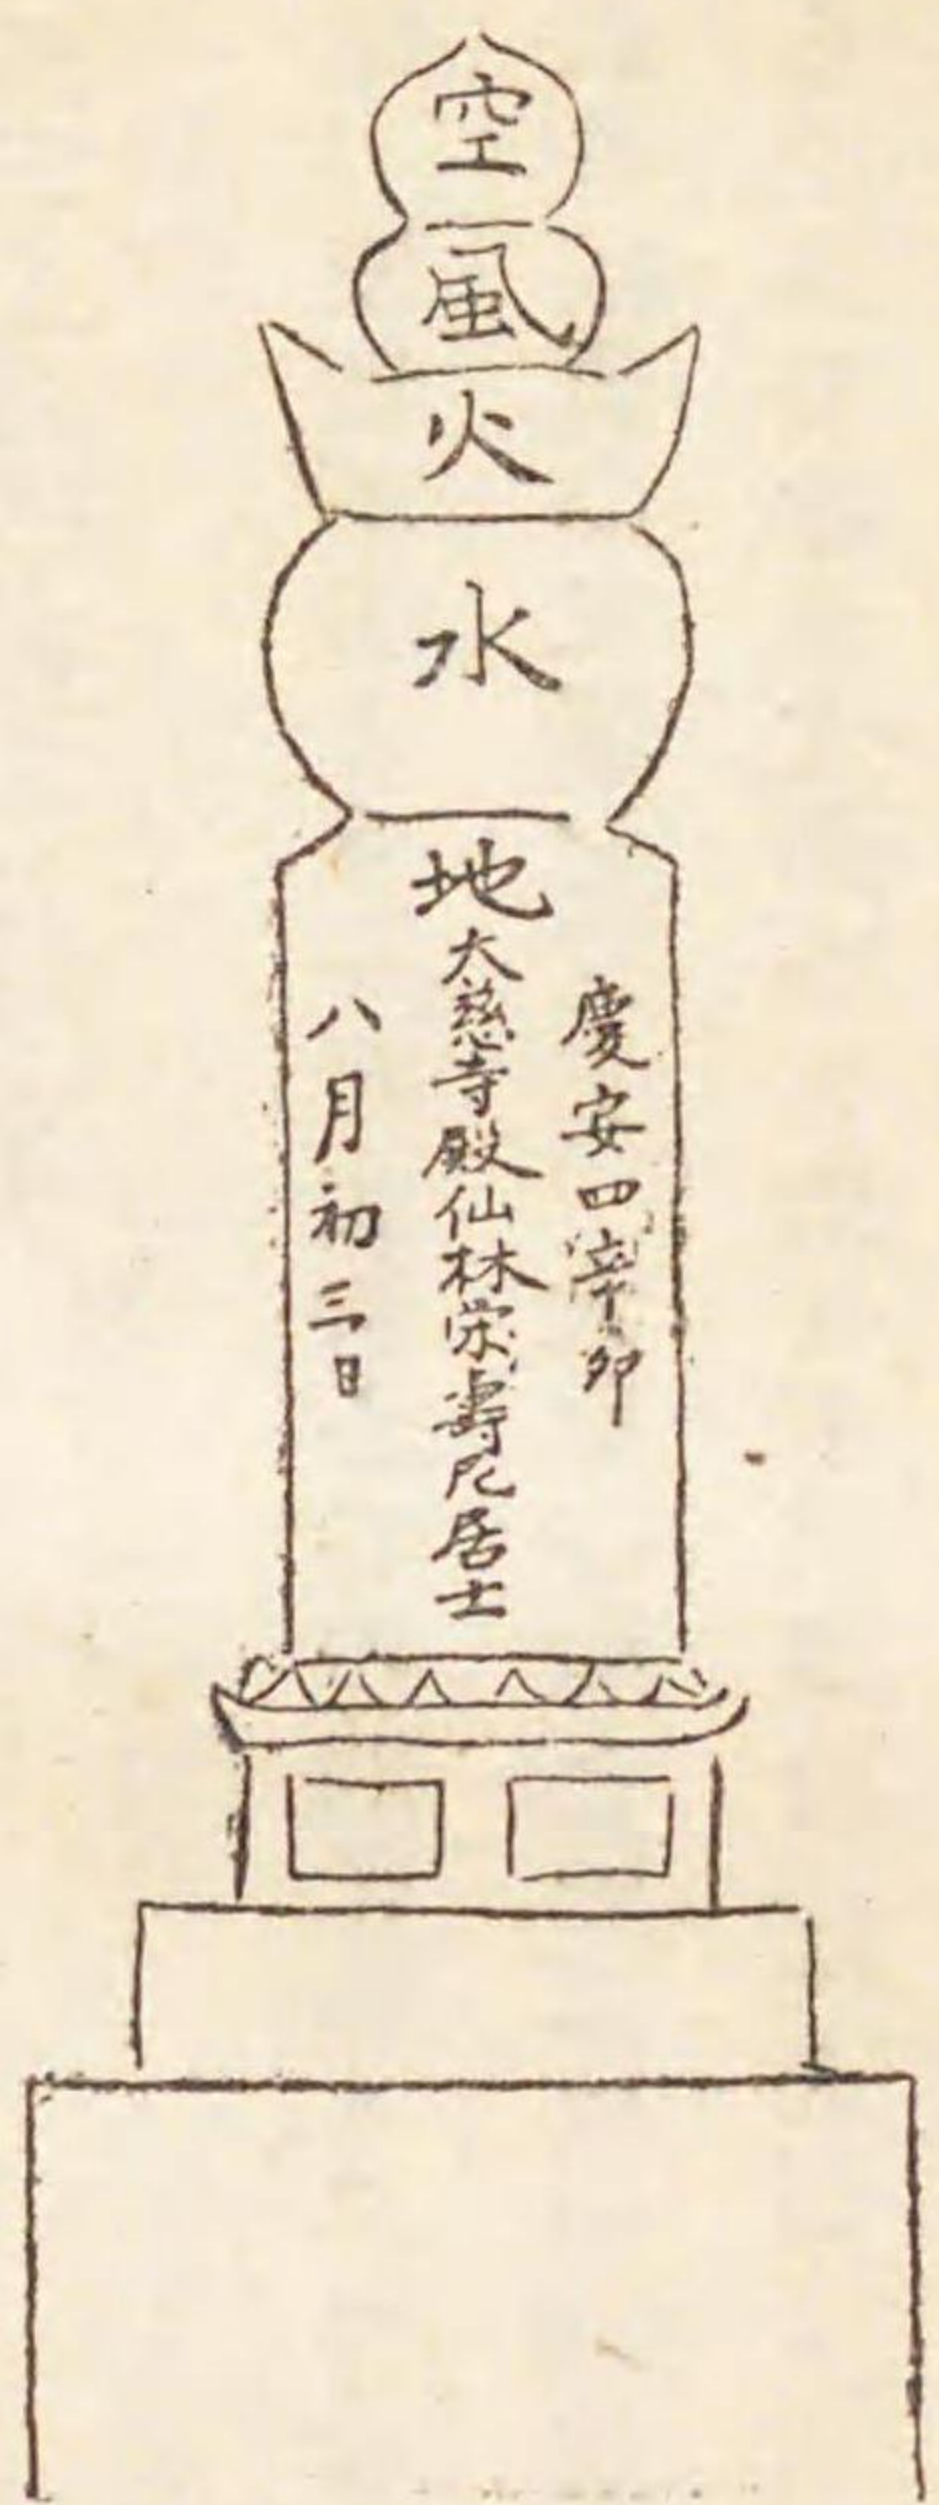 空
風
火
水
地
慶安四辛卯
大慈寺殿仙林壽居士
八月初三日